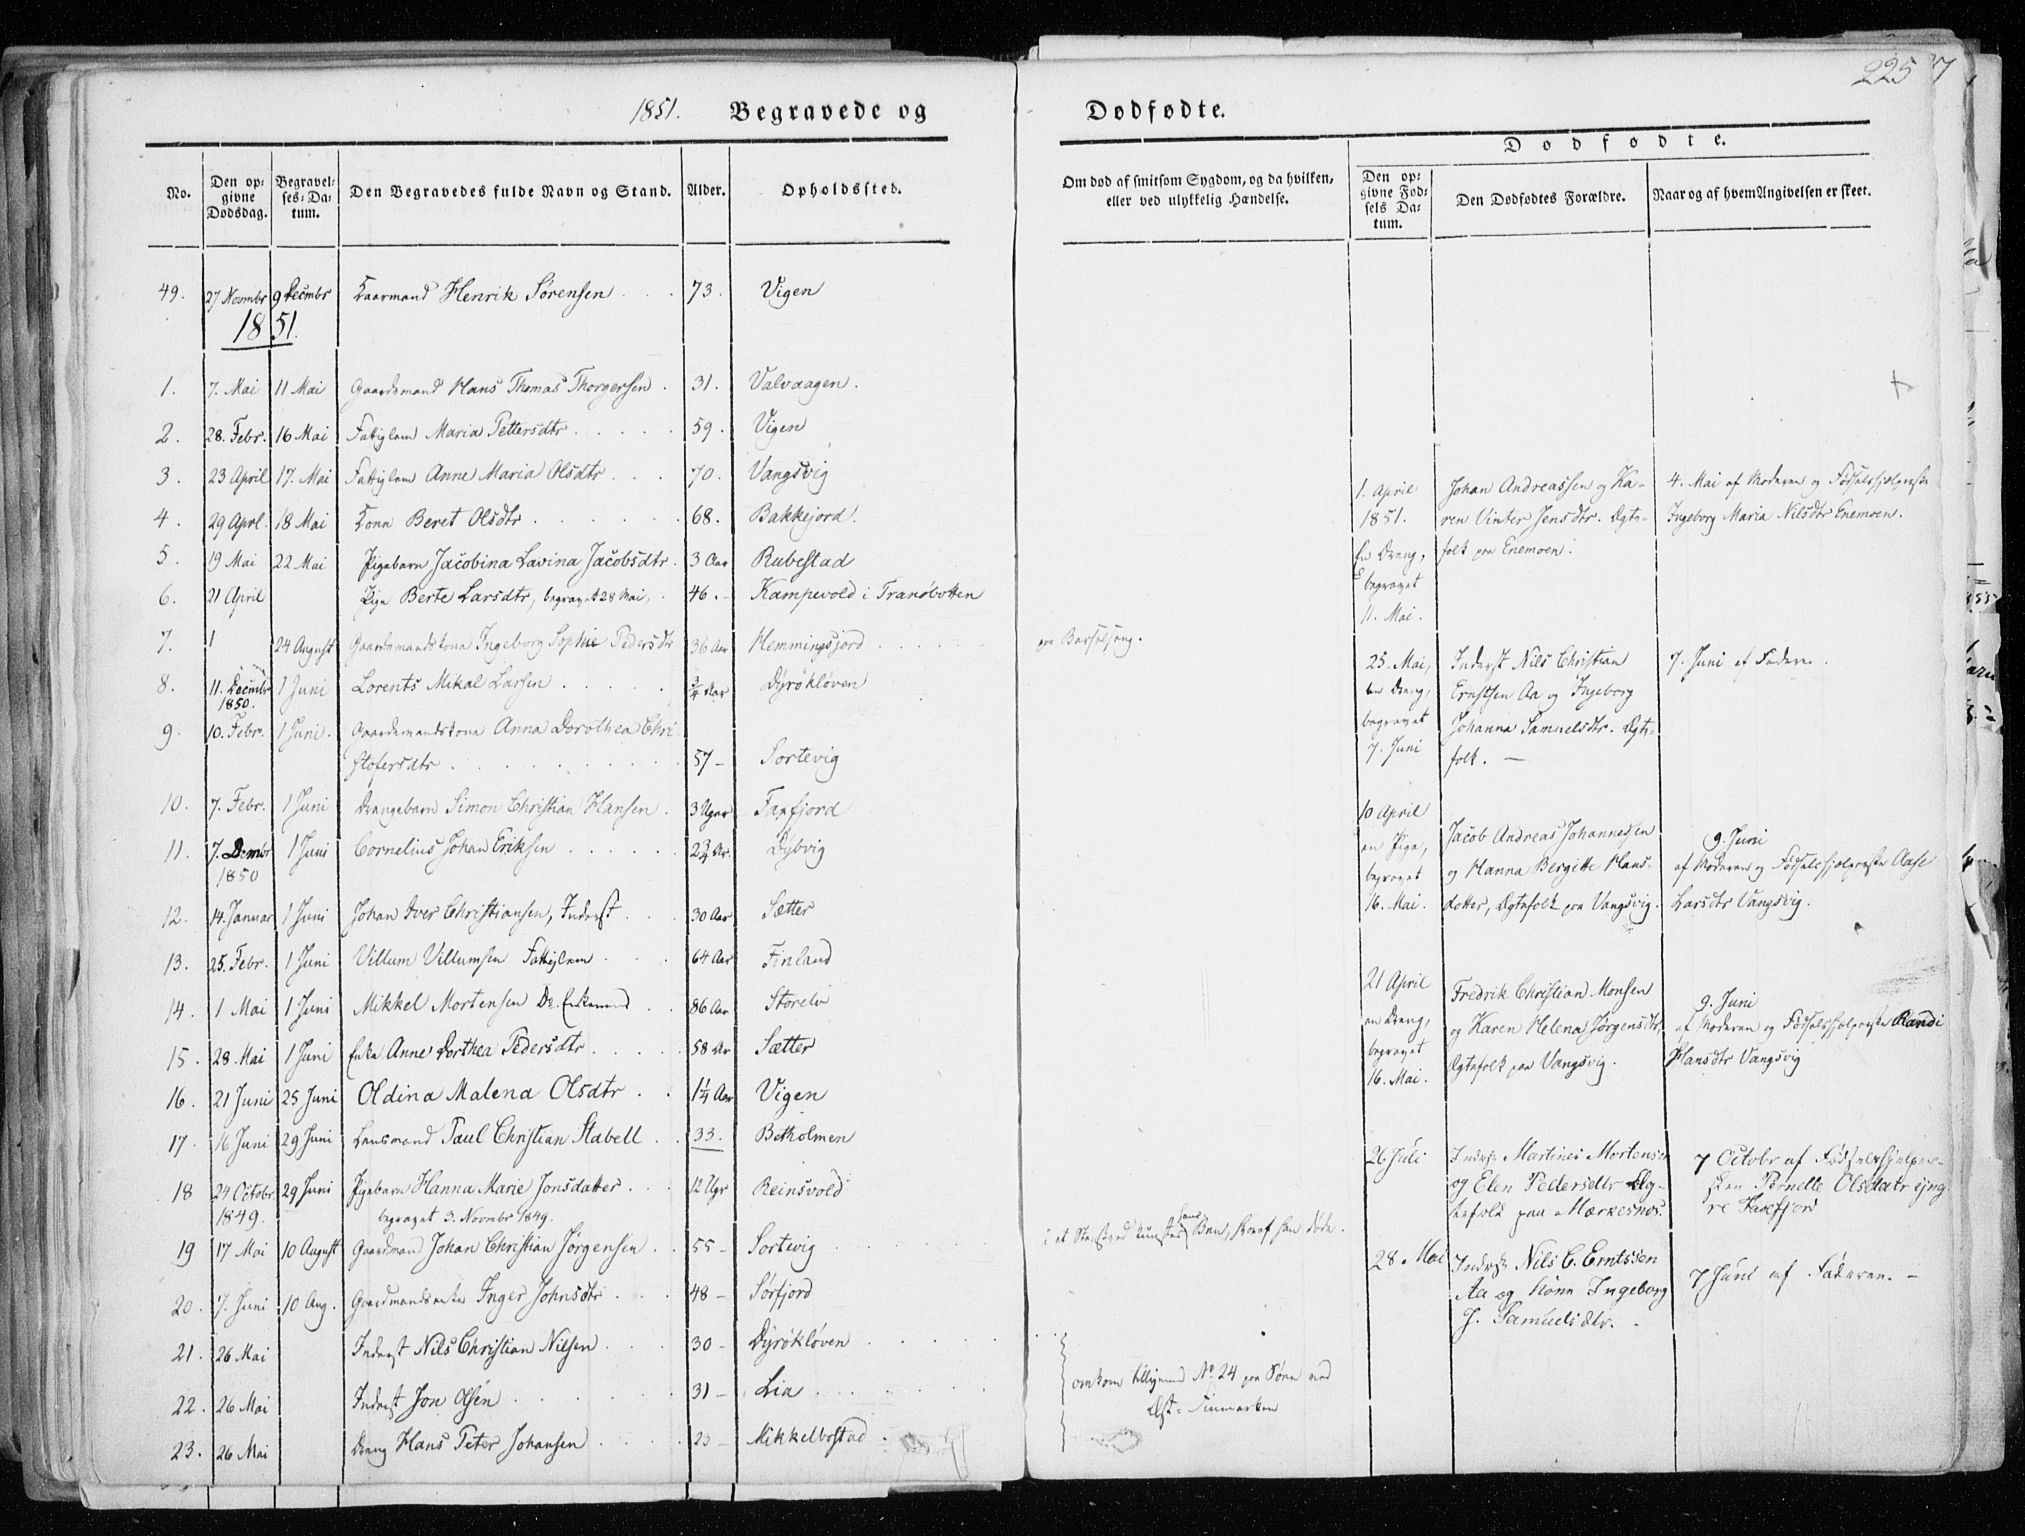 225 7
1851. Begravede og
Dødfødte.
No.
Den opgivne Dødsdag.
Begravelses-Datum.
Den Begravedes fulde Navn og Stand.
Alder.
Opholdssted.
Om død af smitsom Sygdom, og da hvilken, eller ved ulykkelig Hændelse.
Dødfødte.
Den opgivne Fødsels Datum.
Den Dødfødtes Forældre.
Naar og af hvem Angivelsen er skeet.
49. 27 Novmbr 9 Decmbr Kaarmand Henrik Sørensen 73. Vigen
1851.
1. 7. Mai 11 Mai Gaardsmand Hans Thomas Thorgersen 31. Valvaagen.
2. 28. Febr. 16 Mai Fattiglem Maria Pettersdtr 59. Vigen
3. 23 April 17. Mai Fattiglem Anne Maria Olsdtr 70. Vangsvig
4. 29 Aprl. 18 Mai Kone Beret Olsdtr 68. Bakkejord.
5. 19 Mai 22 Mai Pigebarn Jacobina Lavina Jacobsdtr. 3 Aar Rubestad
6. 21 April Pige Berte Larsdtr, begravet 28 Mai, 46. Kampevold i Tranøbotten
7. 1 24 August Gaardsmandskone Ingeborg Sophie Pedersdtr 36 Aar Hemmingsjord paa Barselseng.
8. 11. Decmbr 1 Juni Lorents Mikal Larsen 3/4 Aar Dyrøkløven
1850.
9. 10. Febr. 1 Juni. Gaardsmandskone Anna Dorothea Chri
stofersdtr 57 Sortevig
10. 7. Febr. 1 Juni Drengebarn Simon Christian Hansen 3 Uger Faxfjord
11. 7. Decmbr 1 Juni Cornelius Johan Eriksen 2 3/4 Ar. Dybvig
1850
12. 14. Januar 1 Juni Johan Iver Christiansen, Inderst 30 Aar Sætter
13. 25. Febr. 1 Juni Villum Villumsen Fattiglem 64 Aar Finland
14. 1 Mai 1 Juni Mikkel Mortensen Do. Enkemand 86 Aar Storelv
15. 28. Mai 1 Juni Enke Anne Dorthea Pedersdtr 58 Ar Sætter
16. 21 Juni 25 Juni Oldina Malena Olsdtr 1 1/4 Aar Vigen
17. 16 Juni 29 Juni Lensmand Paul Christian Stabell 33. Betholmen
18 24 Octobr. 29 Juni Pigebarn Hanna Marie Jonsdatter 12 Ugr Reinsvold
1849. begravet 3. Novmbr 1849.
19 17 Mai 10 August Gaardmand Johan Christian Jørgensen 55 Sortevig
20. 7. Juni 10 Aug. Gaardmandsenke Inger Johnsdtr 48 Sørfjord
21. 26 Mai Inderst Nils Christian Nilsen 30 Dyrøkløven
22. 26 Mai Inderst Jon Olsen 31 Lia
23. 26 Mai Dreng Hans Peter Johansen 23 Mikkelbostad
omkom tilligemed No 24 paa Søen ved
Øst-Finmarken
1. April Johan Andreassen og Ka-
1851. ren Vinter Jensdtr. Ægte-
En Dreng, folk paa Enemoen.
begravet
11. Mai.
4. Mai af Moderen og Fødselshjelperske
Ingeborg Maria Nilsdtr Enemoen.
25. Mai, Inderst Nils Christian
en Dreng, Ernstsen Aa og Ingeborg
begravet Johanna Samuelsdtr. Ægte-
7. Juni folk.
7. Juni af Faderen.
10 April
en Pige, Jacob Andreas Johannessen
begravet og Hanna Bergitte Hans-
16. Mai. datter, Ægtefolk paa Vangsvig.
9. Juni
af Moderen og Fødselshjelperske Aase
Larsdtr Vangsvig.
21 April Fredrik Christian Monsen
en Dreng, og Karen Helena Jørgensdtr
begravet Ægtefolk paa Vangsvig.
16. Mai.
9. Juni
af Moderen og Fødselshjelperske Randi
Hansdtr Vangsvig
26 Juli Inderst Martines Mortensen
og Elen Pedersdtr Æg-
tefolk paa Mærkesnes.
7 Octobr af Fødselshjelper-
sken Pernelle Olsdatr
28. Mai Inderst Nils C. Erntssen
Aa og Kone Ingeborg
J. Samuelsdtr.
7 Juni af Faderen.